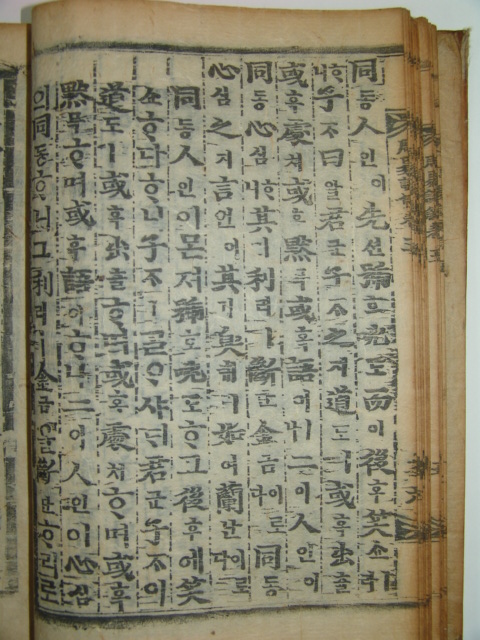 同동人인이先션號호咷도而이後후笑쇼ㅣ라
ᄒᆞ니子ᄌᆞ曰왈君군子ᄌᆞ之지道도ㅣ或혹出츌
或혹處쳐或혹黙믁或혹語어ㅣ니二이人인이
同동心심ᄒᆞ니其기利리ㅣ斷단金금이로다同동
心심之지言언이其기臭ㅣ如여蘭난이로다
同동人인이몬져號호咷도ᄒᆞ고後후에笑
쇼ᄒᆞ다ᄒᆞ니子ᄌᆞㅣᄀᆞᆯᄋᆞ샤ᄃᆡ君군子ᄌᆞ이
道도ㅣ或혹出츌ᄒᆞ며或혹處쳐ᄒᆞ며或혹
黙믁ᄒᆞ며或혹語어ᄒᆞ나二이人인이心심
의同동ᄒᆞ니그利리ㅣ金금을斷단ᄒᆞ리로